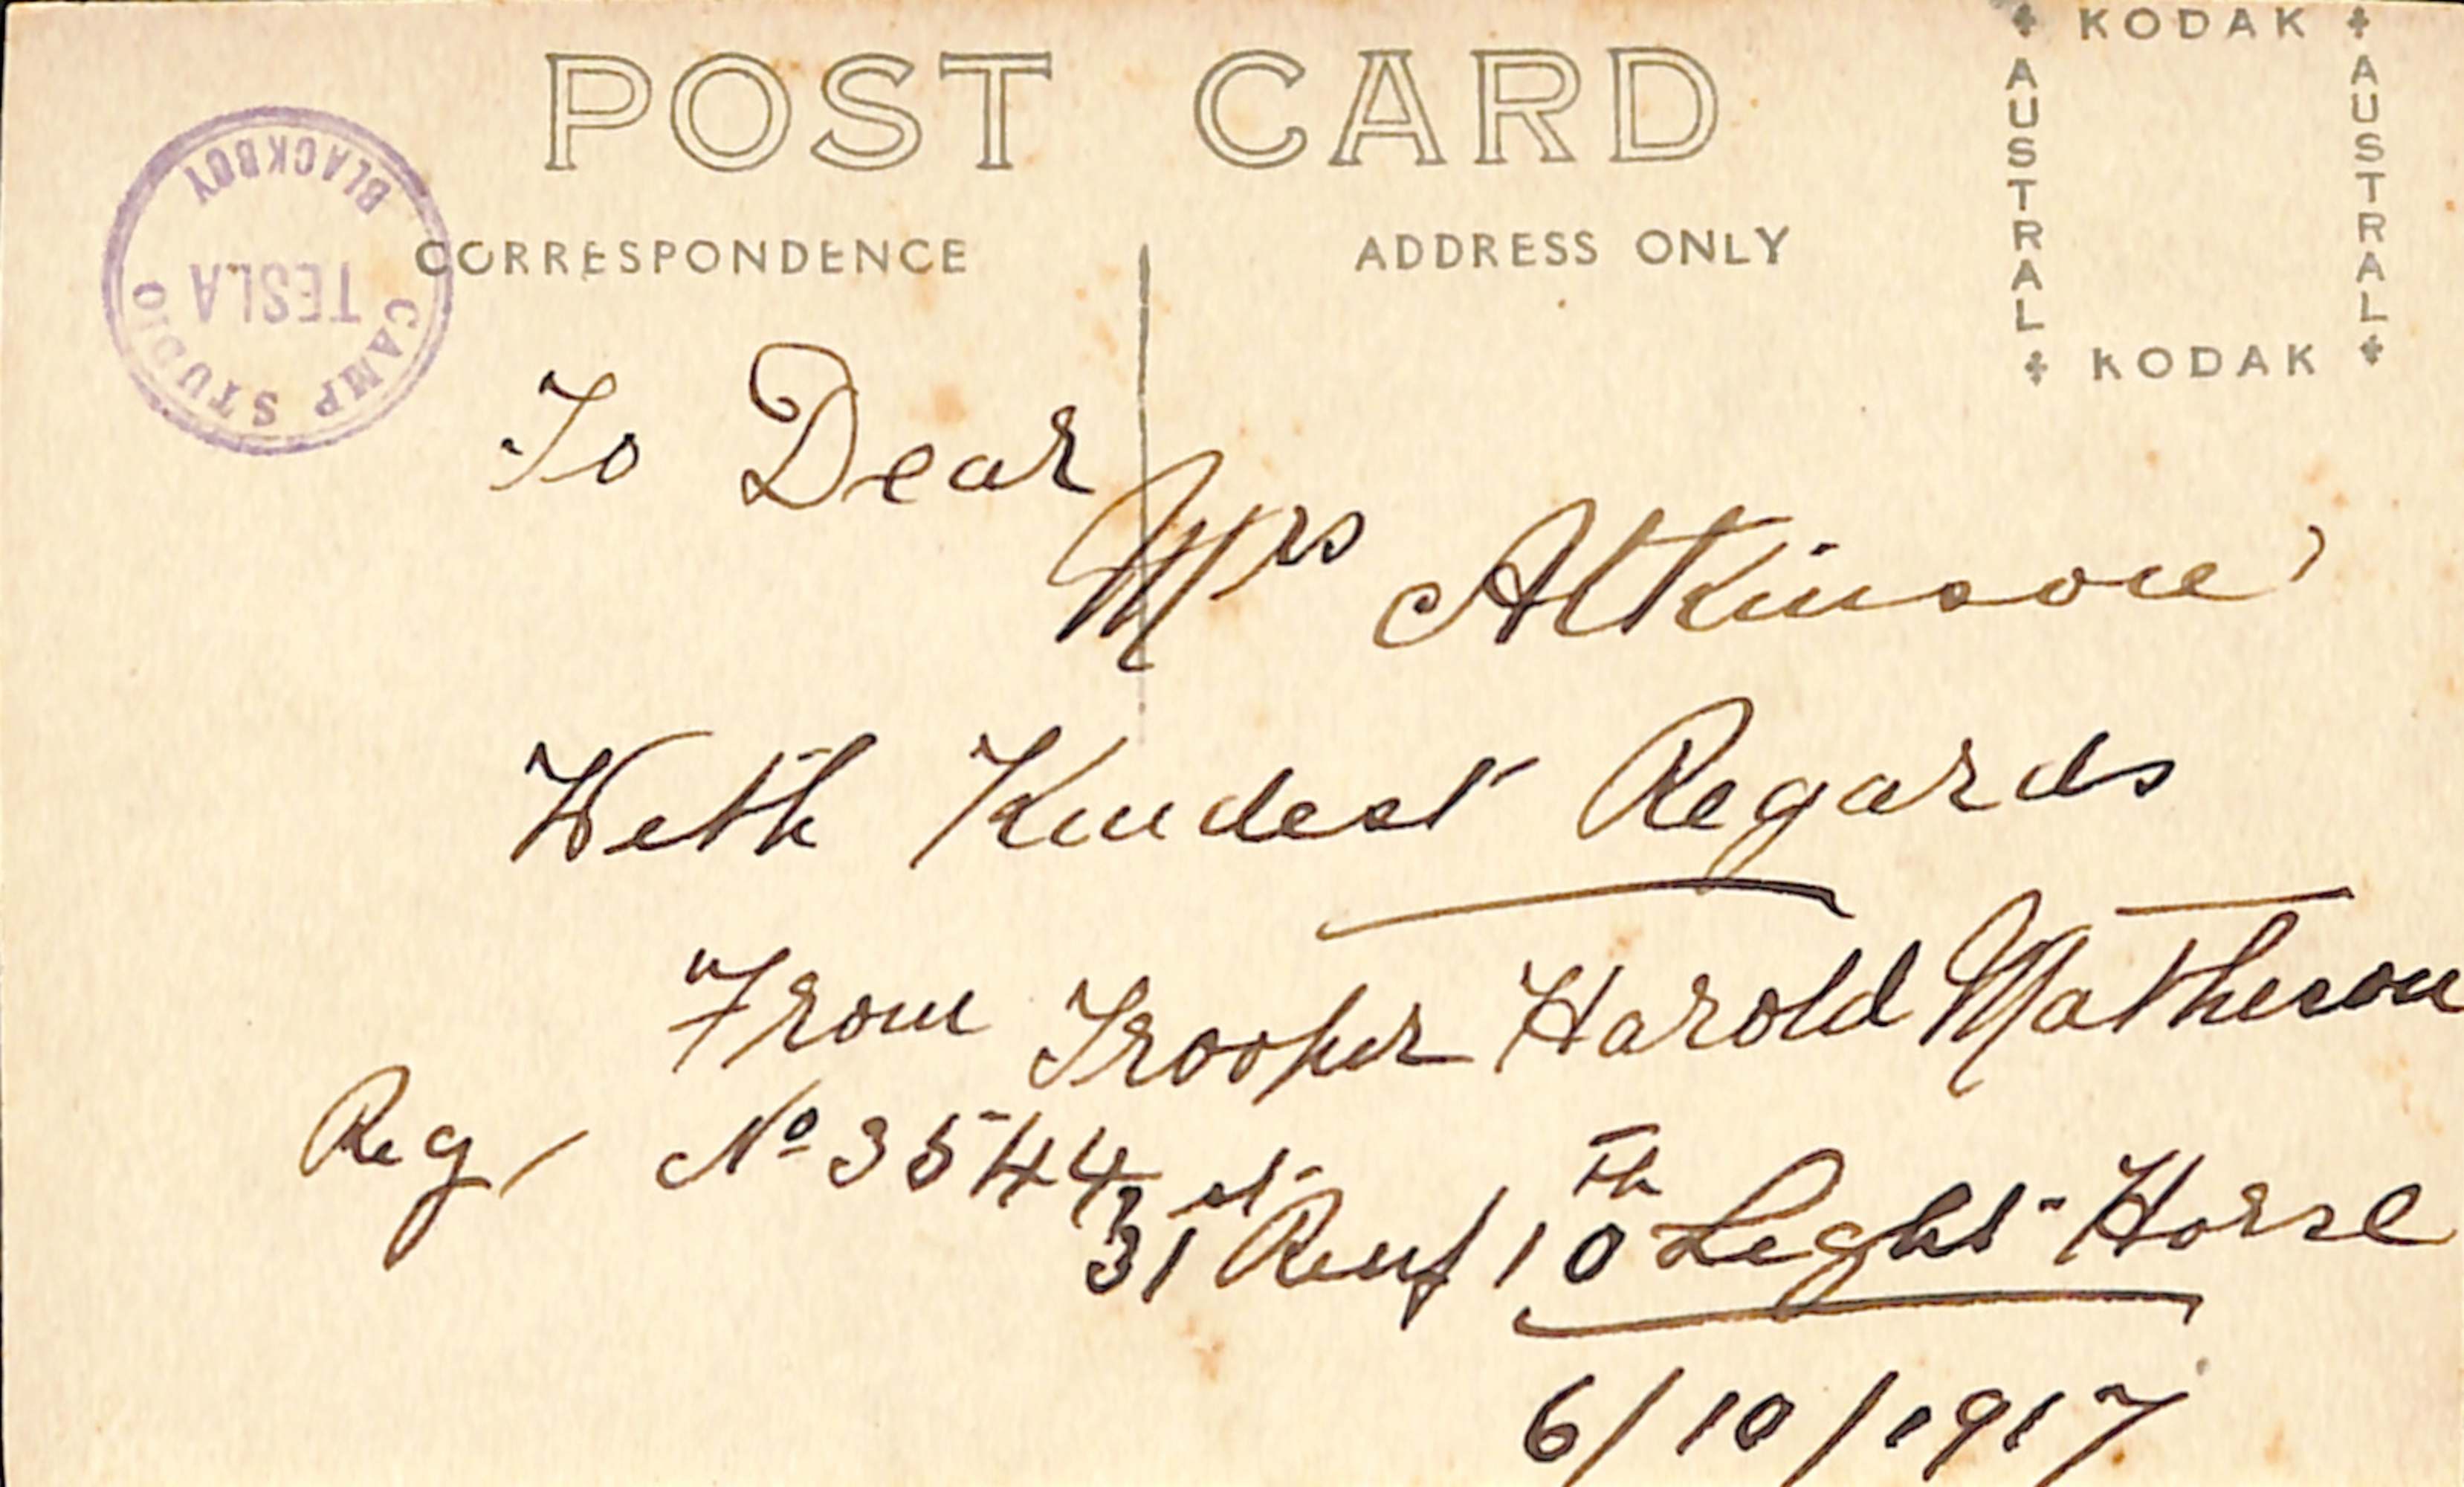 POST CARD
KODAK
AUSTRAL
AUSTRAL
KODAK
CAMP STUDIO
TESLA
BLACKBOY
CORRESPONDENCE
ADDRESS ONLY
To Dear
Mrs Atkinson
With Kindest Regards
From Trooper Harold Matheson
Reg No 3544
31st Reinf 10th Light Horse
6/10/1917